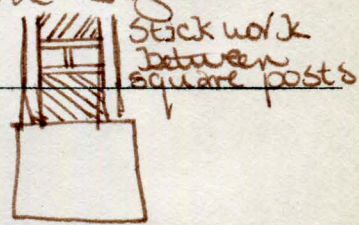 Stick work
between
square posts